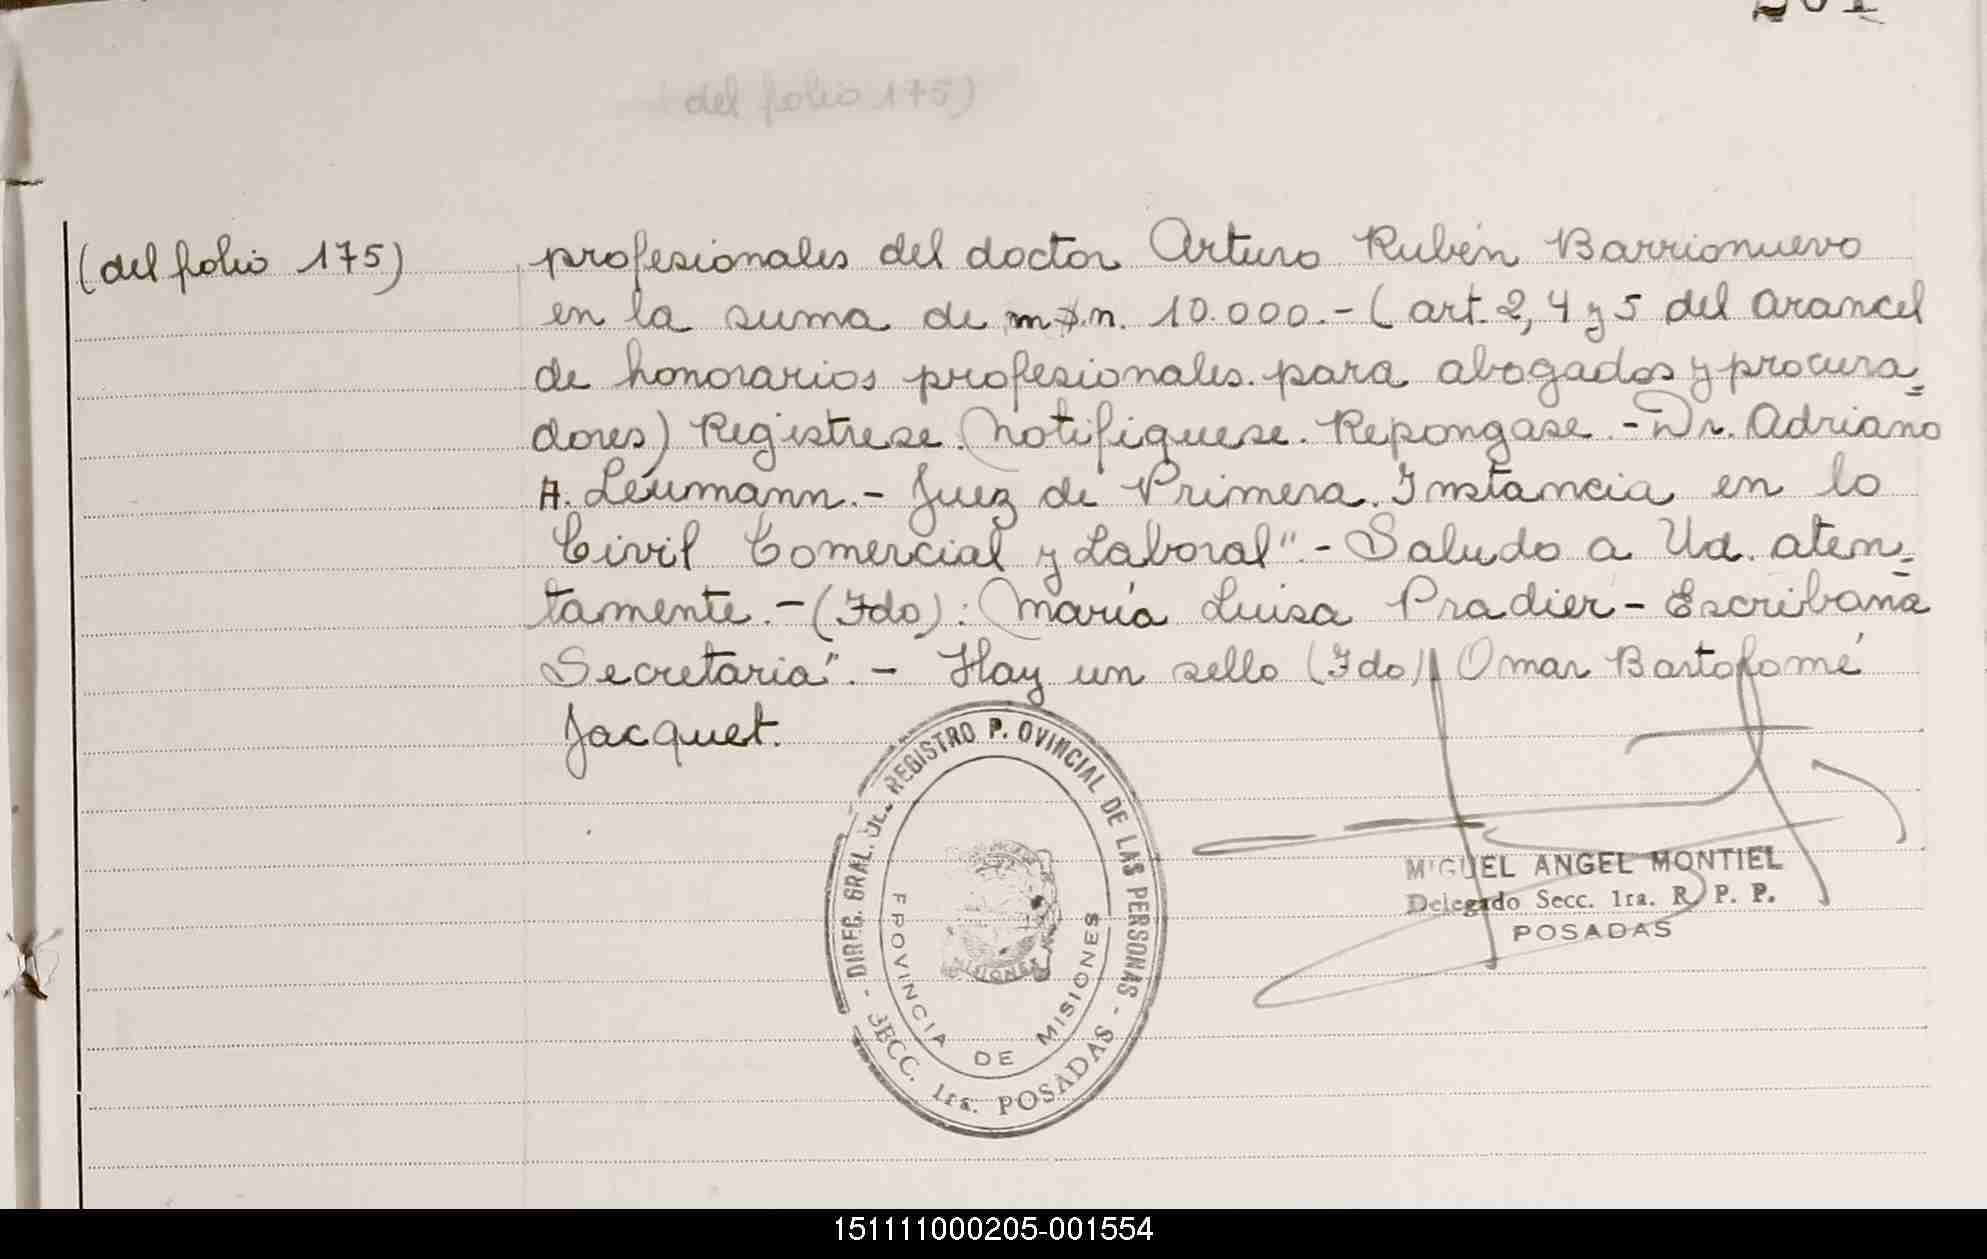 (del folio 175)
(del folio 175)
profesionales del doctor Arturo Rubén Barrionuevo
en la suma de m$n. 10.000.- (art. 2, 4 y 5 del arancel
de honorarios profesionales para abogados y procura=
dores) Registrese. Notifiquese. Repongase.- Dr. Adriano
A. Leumann.- Juez de Primera Instancia en lo
Civil Comercial y Laboral".- Saludo a Ud. aten=
tamente.- (Fdo): María Luisa Pradier - Escribana
Secretaria".- Hay un sello (Fdo) Omar Bartolomé
Jacquet.
DIREC. GRAL. DEL REGISTRO P. OVINCIAL DE LAS PERSONAS -
PROVINCIA DE MISIONES
MISIONES
- SECC. 1ra. POSADAS -
MIGUEL ANGEL MONTIEL
Delegado Secc. 1ra. R. P. P.
POSADAS
151111000205-001554